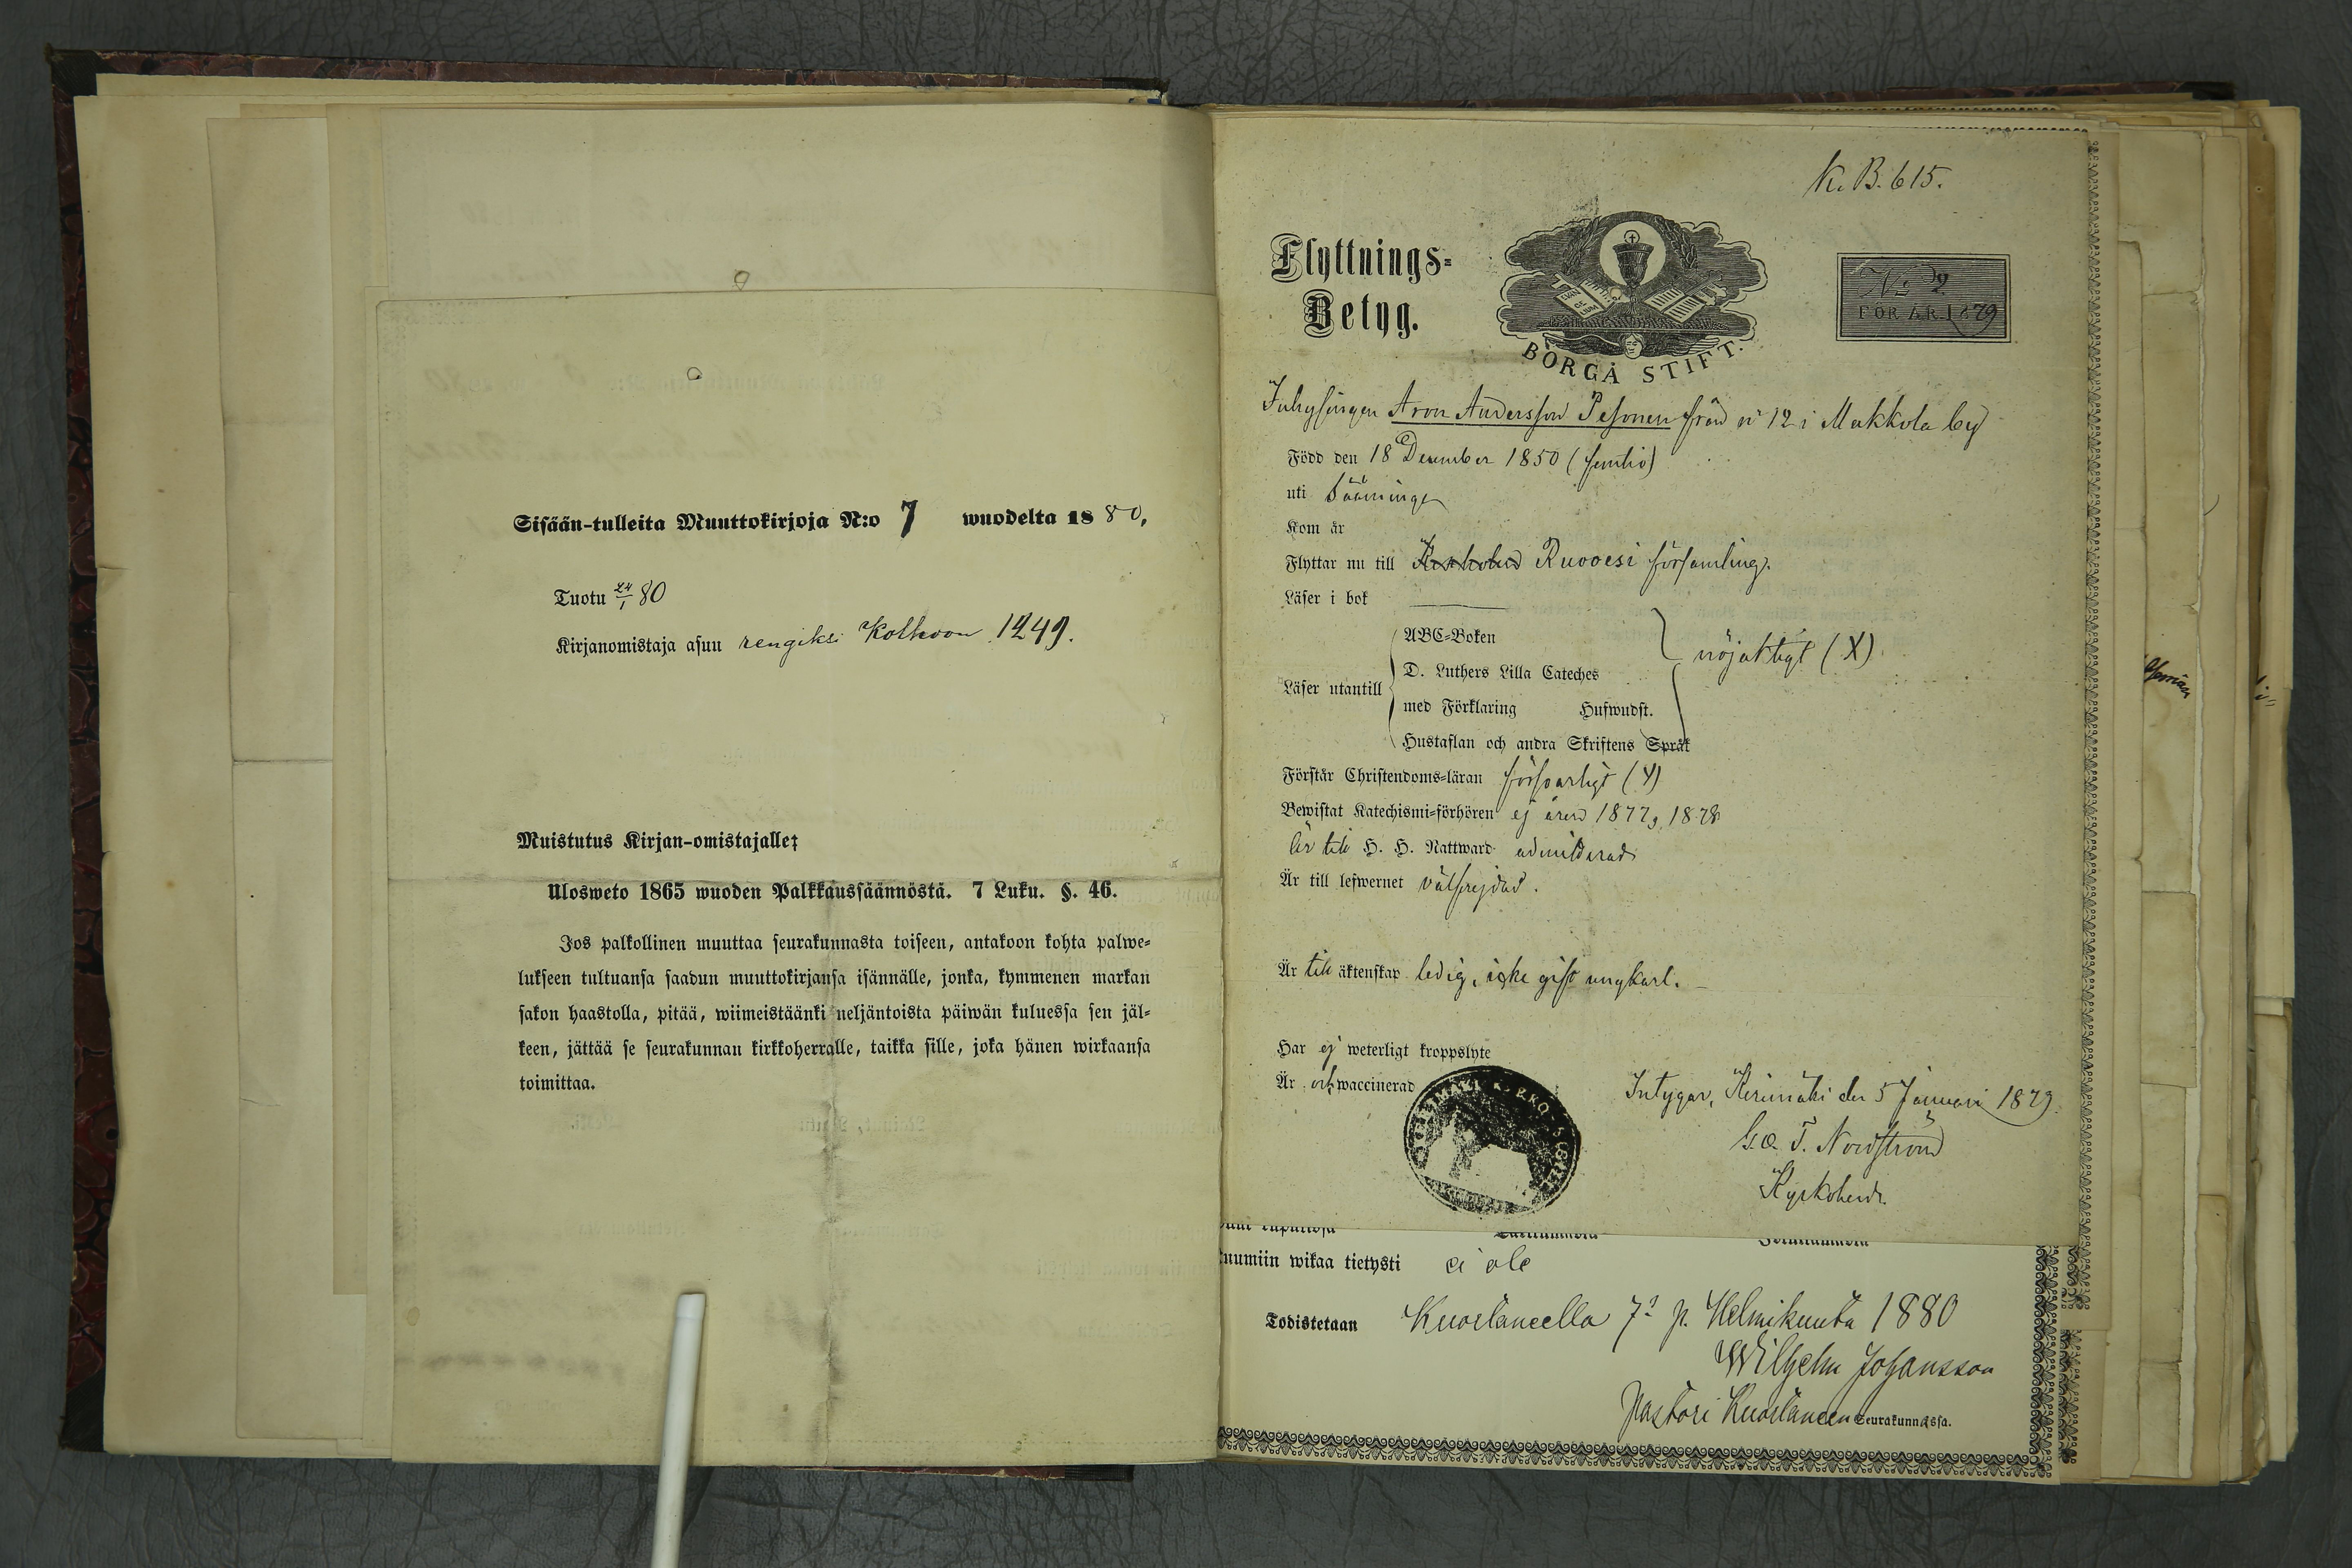 Sisään-tulleita Muuttokirjoja N:o 7 wuodelta 1880,
Tuotu 24/1 80
Kirjanomistaja asuu rengiksi Kolkoon 1249.
Muistutus Kirjan-omistajalle:
Ulosweto 1865 wuoden Palkkaussäännöstä. 7 Luku. §. 46.
Jos palkollinen muuttaa seurakunnasta toiseen, antakoon kohta palwe-
lukseen tultuansa saadun muuttokirjansa isännälle, jonka, kymmenen markan
sakon haastolla, pitää, wiimeistäänki neljäntoista päiwän kuluessa sen jäl-
keen, jättää se seurakunnan kirkkoherralle, taikka sille, joka hänen wirkaansa
toimittaa.
K. B. 615.
Flyttnings-
Betyg.
BORGÅ STIFT.
No 2
FÖR ÅR 1879
Inhysingen Aron Andersson Pesonen från no 12 i Makkola by
Född den 18 December 1850 (femtio)
uti Sääminge
Kom år
Flyttar nu till Ruovesi församling.
Läser i bok
Läser utantill
ABC-Boken
D. Luthers Lilla Cateches
med Förklaring Hufwudst.
Hustaflan och andra Skriftens Språk
nöjaktigt (X)
Förstår Christendoms-läran försvarligt (Y)
Bewistat Katechismi-förhören ej åren 1877, 1878
Är till H. H. Nattward admitterad
Är till lefwernet välfrejdad.
Är till äktenskap ledig, icke gift ungkarl.
Har ej weterligt kroppslyte
Är och waccinerad
Intygar, Kerimäki den 5 Januari 1879.
G. T. Nordström
Kyrkoherde.
ruumiin wikaa tietysti ei ole
Todistetaan Kuortaneella 7 p. Helmikuuta 1880
Wilhelm Johansson
Pastori Kuortaneen Seurakunnassa.